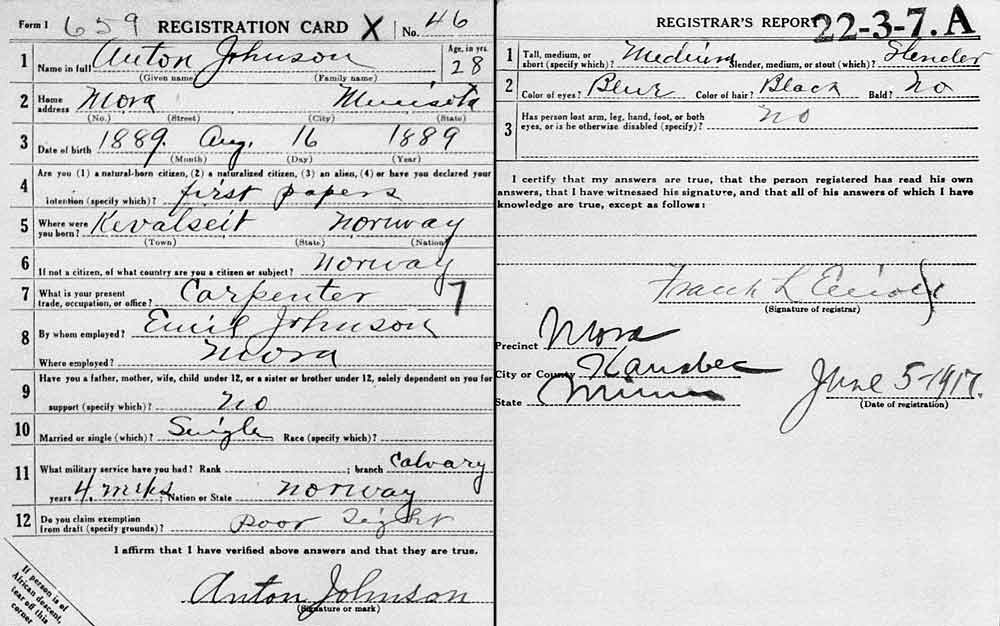 Form 1 659 REGISTRATION CARD X No. 46
1 Name in full Anton Johnson Age, in yrs. 28
(Given name) (Family name)
2 Home address Mora Minnisota
(No.) (Street) (City) (State)
3 Date of birth 1889. Aug. 16 1889
(Month) (Day) (Year)
4 Are you (1) a natural-born citizen, (2) a naturalized citizen, (3) an alien, (4) or have you declared your
intention (specify which)? first papers
5 Where were you born? Kevalseit Norway
(Town) (State) (Nation)
6 If not a citizen, of what country are you a citizen or subject? Norway
7 What is your present trade, occupation, or office? Carpenter 7
8 By whom employed? Emil Johnson
Where employed? Mora
9 Have you a father, mother, wife, child under 12, or a sister or brother under 12, solely dependent on you for
support (specify which)? no
10 Married or single (which)? Single Race (specify which)?
11 What military service have you had? Rank ; branch Calvary
years 4. Nation or State Norway
12 Do you claim exemption from draft (specify grounds)? Poor Sight
I affirm that I have verified above answers and that they are true.
Anton Johnson
(Signature or mark)
If person is of
African descent,
tear off this
corner
REGISTRAR'S REPORT 22-3-7. A
1 Tall, medium, or short (specify which)? Medium Slender, medium, or stout (which)? Slender
2 Color of eyes? Blue Color of hair? Black Bald? No
3 Has person lost arm, leg, hand, foot, or both
eyes, or is he otherwise disabled (specify)? no
I certify that my answers are true, that the person registered has read his own
answers, that I have witnessed his signature, and that all of his answers of which I have
knowledge are true, except as follows:
Frank L
(Signature of registrar)
Precinct Mora
City or County Kanabec
State Minn
June 5-1917.
(Date of registration)